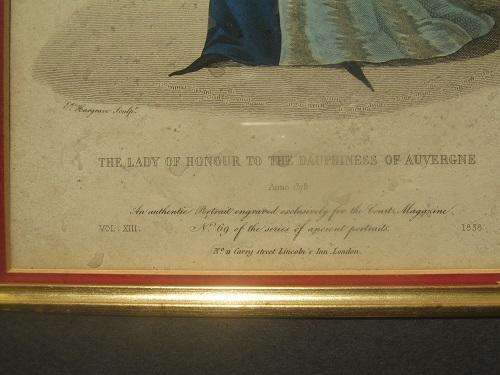 Hargrave Sculpt.
THE LADY OF HONOUR TO THE DAUPHINESS OF AUVERGNE
Anno
An authentic Portrait engraved exclusively for the Court Magazine.
VOL. XIII. No. 69 of the series of ancient portraits. 1838.
No. 11 Carey street Lincoln's Inn London.